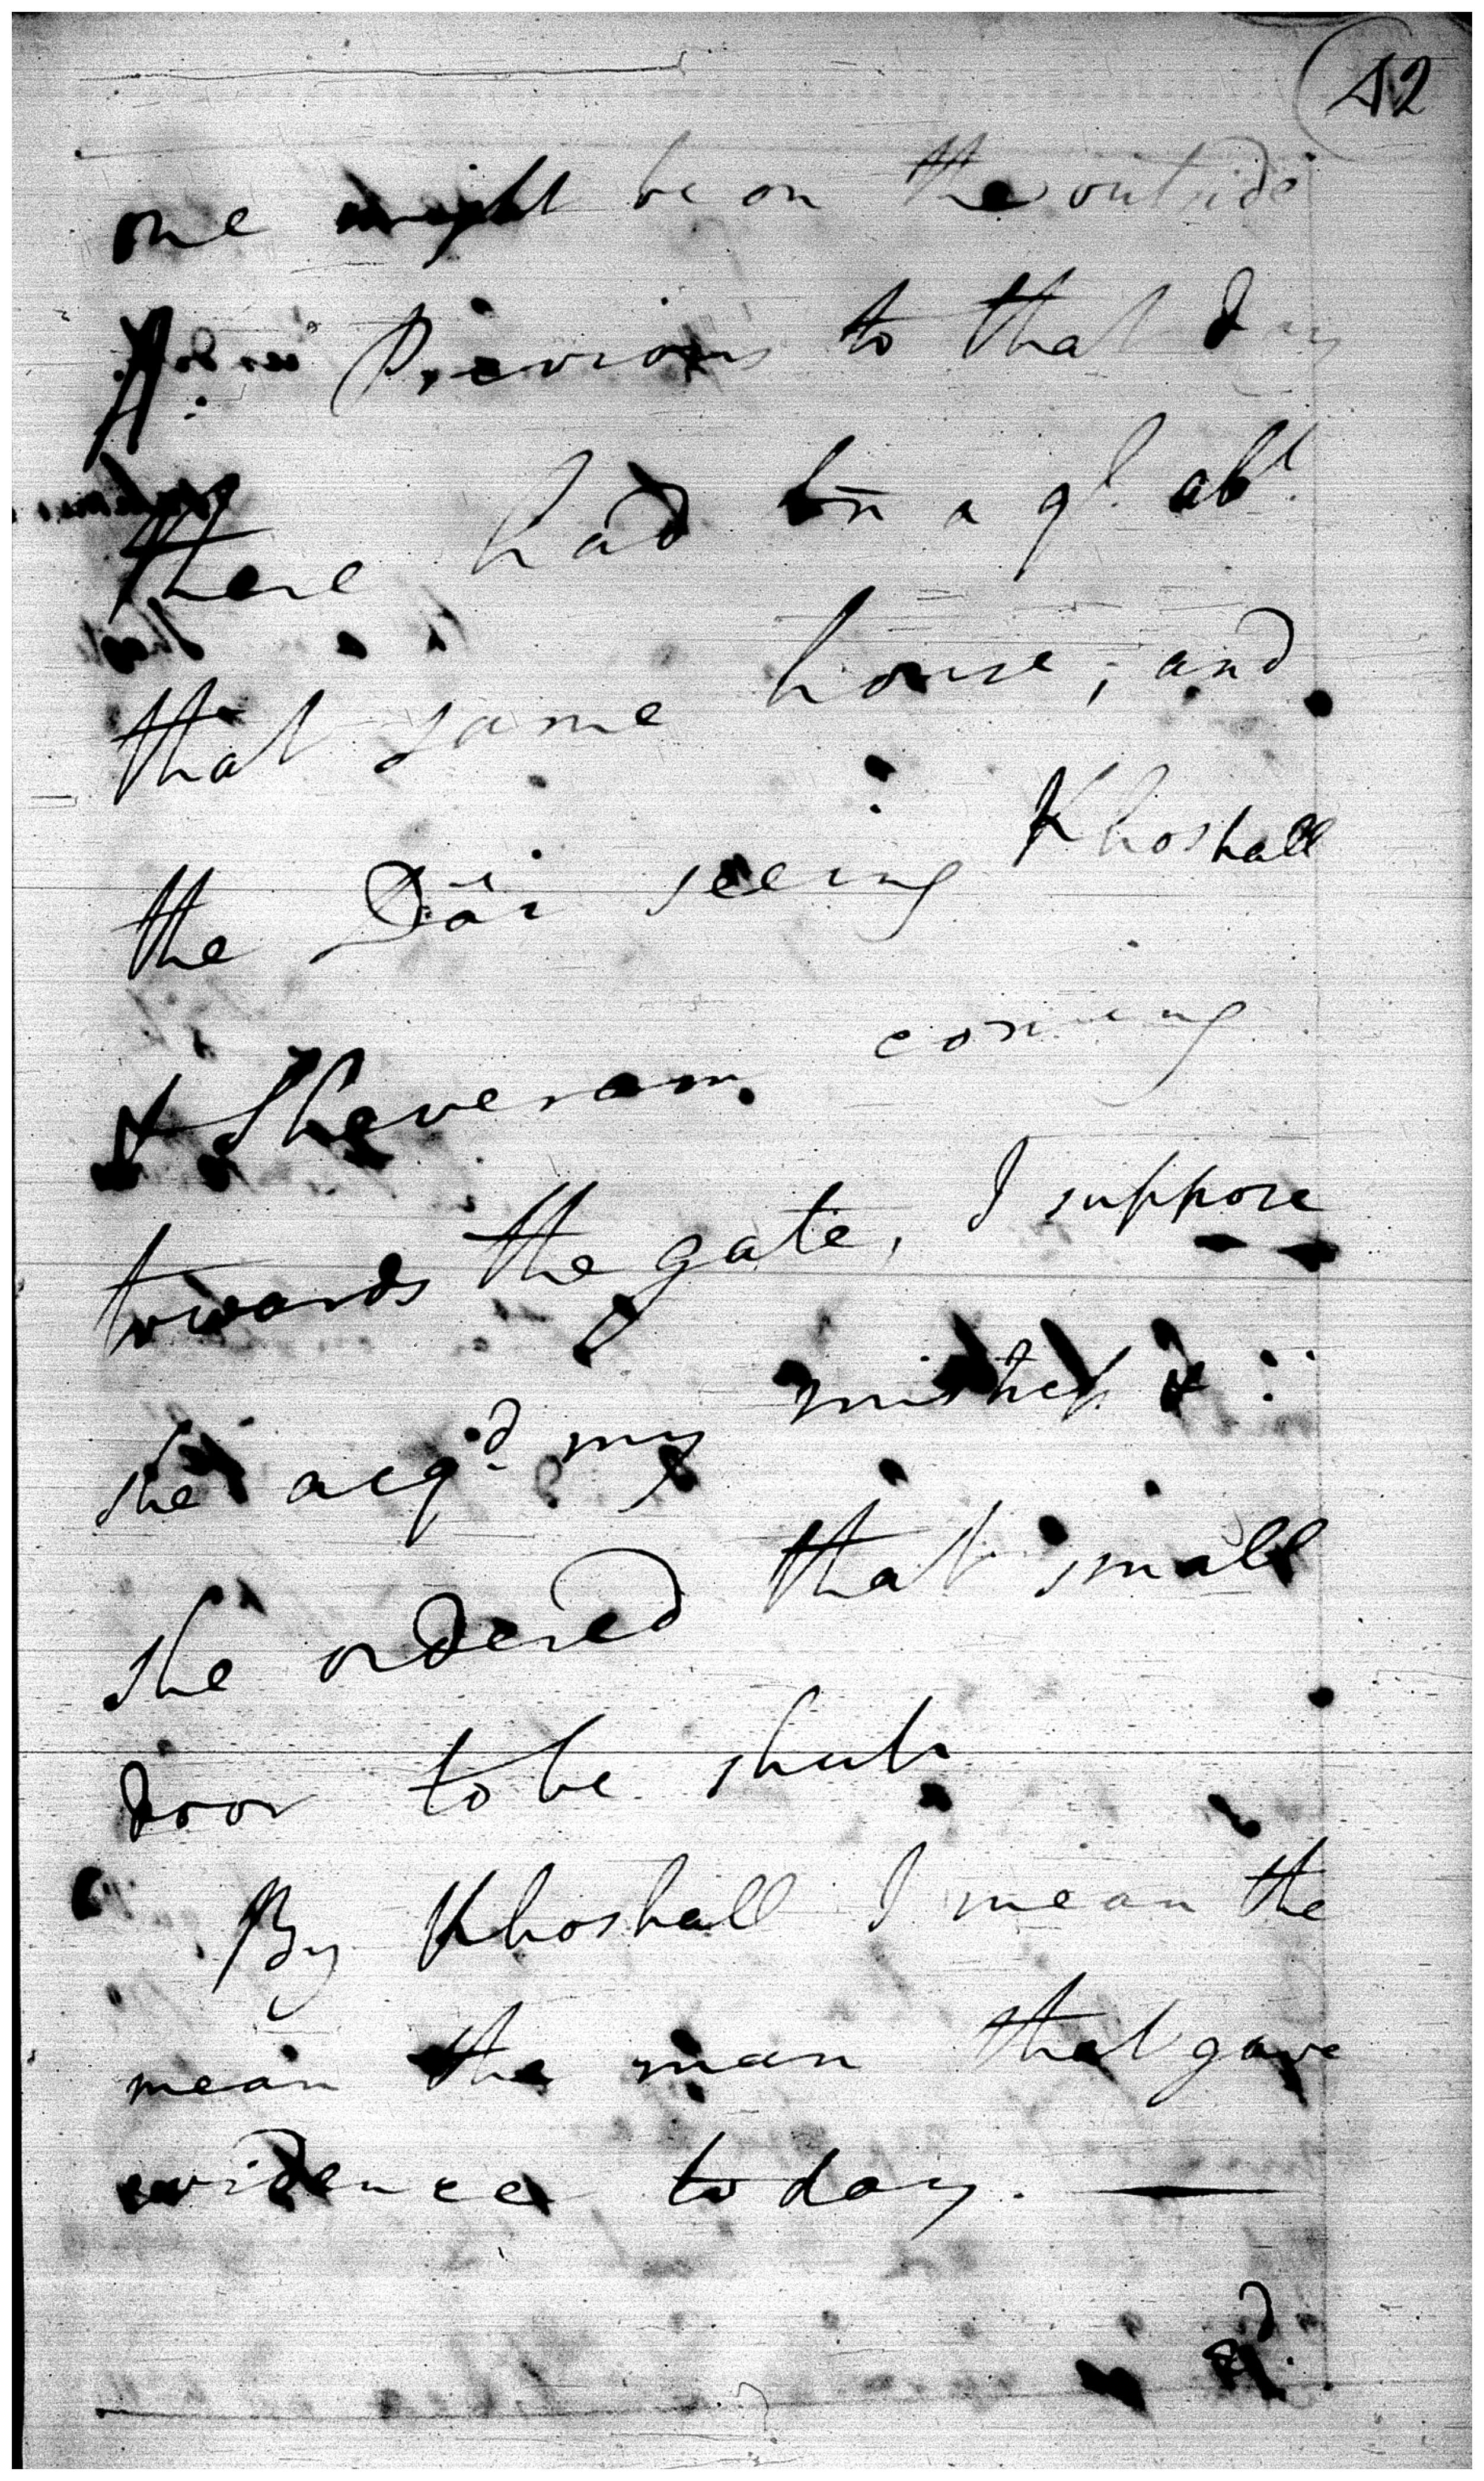 42
one might be on the outside
A: Previous to that day
there had bn a ql. abt
that same house; and
the Dâi seeing Khoshall
& Sheveram coming
towards the gate, I suppose
she acqd. my mistress &
she ordered that small
door to be shut.
By Khoshall I mean the
mean the man that gave
evidence to day. —